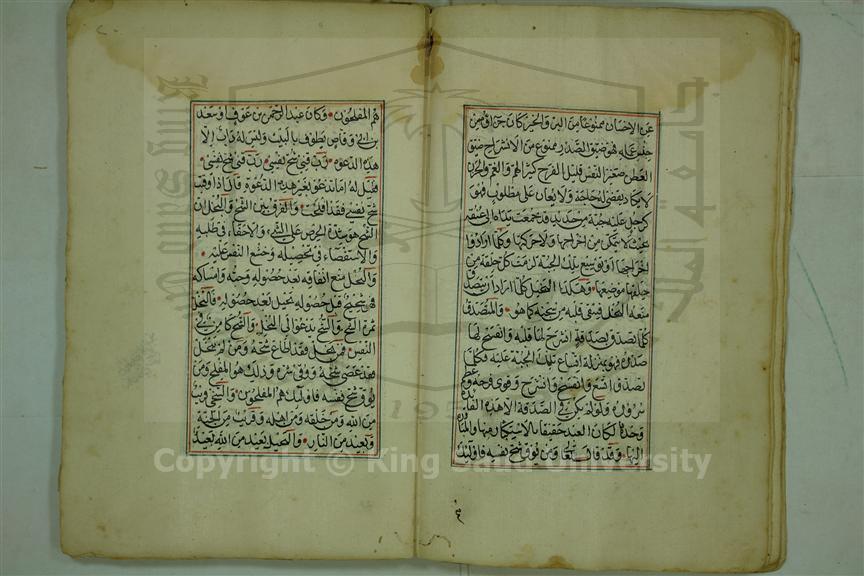 عن الإحسان ممنوعا من البر والخير كان جزاؤه من
جنس عمله فهو ضيق الصدر ممنوع من الانشراح ضيق
العطن صغير النفس قليل الفرح كثير الهم والغم والحزن
لا يكاد يقضى له حاجة ولا يعان على مطلوب فهو
كرجل عليه جبة من حديد قد جمعت يداه الى عنقه
بحيث لا يتمكن من اخراجها ولا حركتها وكلما اراد
اخراجها او توسيع تلك الجبة لزمت كل حلقة من
حلقها موضعها وهكذا البخيل كلما اراد ان يتصدق
منعه البخل فيبقى قلبه في سجنه كما هو والمتصدق
كلما تصدق بصدقة انشرح لها قلبه وانفسح لها
صدره فهو بمنزلة اتساع تلك الجبة عليه فكلما
تصدق اتسع وانفسح وانشرح وقوي فرحه وعظم
سروره ولو لم يكن في الصدقة الا هذه الفائدة
وحدها لكان العبد حقيقا بالاستكثار منها والمبادرة
اليها وقد قال تعالى ومن يوق شح نفسه فاولئك
هم المفلحون وكان عبد الرحمن بن عوف او سعد
بن ابي وقاص يطوف بالبيت وليس له دأب الا
هذه الدعوة رب قني شح نفسي رب قني شح نفسي
فقيل له اما تدعو بغير هذه الدعوة قال اذا وقيت
شح نفسي فقد افلحت والفرق بين الشح والبخل ان
الشح هو شدة الحرص على الشيء والاحفاء في طلبه
والاستقصاء في تحصيله وجشع النفس عليه
والبخل منع انفاقه بعد حصوله وحبه وامساكه
فهو شحيح قبل حصوله بخيل بعد حصوله فالبخل
ثمرة الشح والشح يدعو الى البخل والشح كامن في
النفس فمن بخل فقد اطاع شحه ومن لم يبخل
فقد عصى شحه ووقي شره وذلك هو المفلح ومن
يوق شح نفسه فاولئك هم المفلحون والسخي قريب
من الله ومن خلقه ومن اهله وقريب من الجنة
وبعيد من النار والبخيل بعيد من الله بعيد
Copyright © King Saud University
جامعة الملك سعود
1957